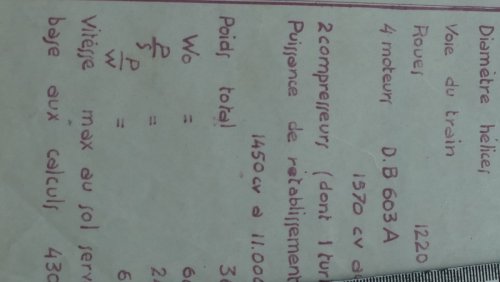 Diamètre hélices
Voie du train
Roues 1220
4 moteurs D.B 603 A
1570 cv
2 compresseurs (dont 1
Puissance de rétablissement
1450 cv à 11.000
Poids total
Wo =
P/S =
P/W =
Vitesse max au sol
base aux calculs 430